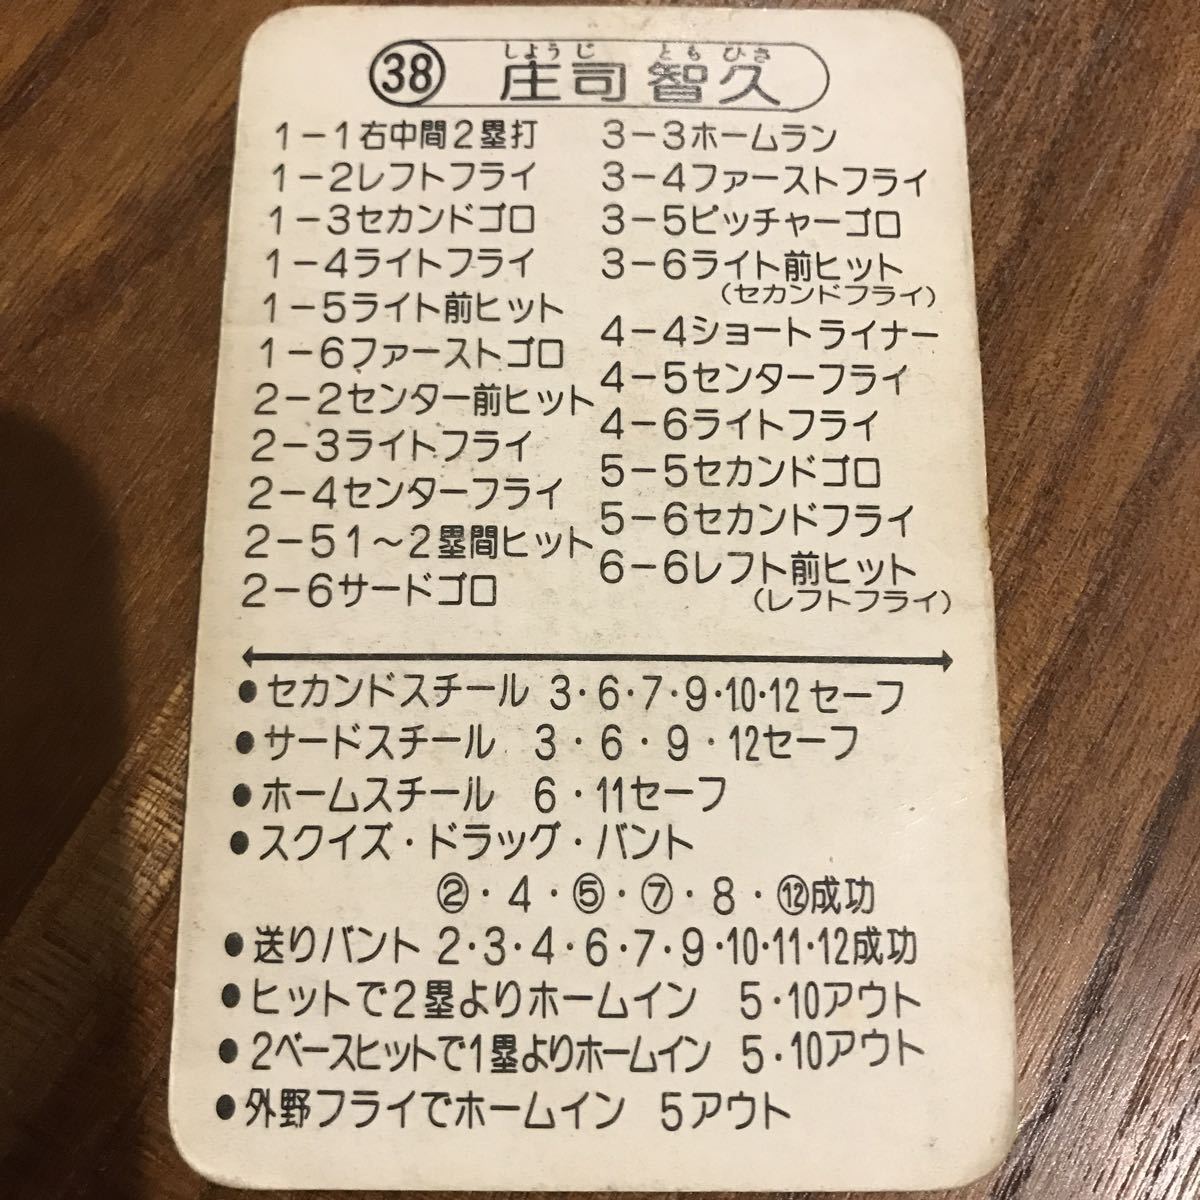 しようじ ともひさ
㊳ 庄司智久
1－1右中間2塁打
1－2レフトフライ
1－3セカンドゴロ
1－4ライトフライ
1－5ライト前ヒット
1－6ファーストゴロ
2－2センター前ヒット
2－3ライトフライ
2－4センターフライ
2－51～2塁間ヒット
2－6サードゴロ
3－3ホームラン
3－4ファーストフライ
3－5ピッチャーゴロ
3－6ライト前ヒット
(セカンドフライ)
4－4ショートライナー
4－5センターフライ
4－6ライトフライ
5－5セカンドゴロ
5－6セカンドフライ
6－6レフト前ヒット
(レフトフライ)
●セカンドスチール 3・6・7・9・10・12セーフ
●サードスチール 3・6・9・12セーフ
●ホームスチール 6・11セーフ
●スクイズ・ドラッグ・バント
②・4・⑤・⑦・8・⑫成功
●送りバント 2・3・4・6・7・9・10・11・12成功
●ヒットで2塁よりホームイン 5・10アウト
●2ベースヒットで1塁よりホームイン 5・10アウト
●外野フライでホームイン 5アウト